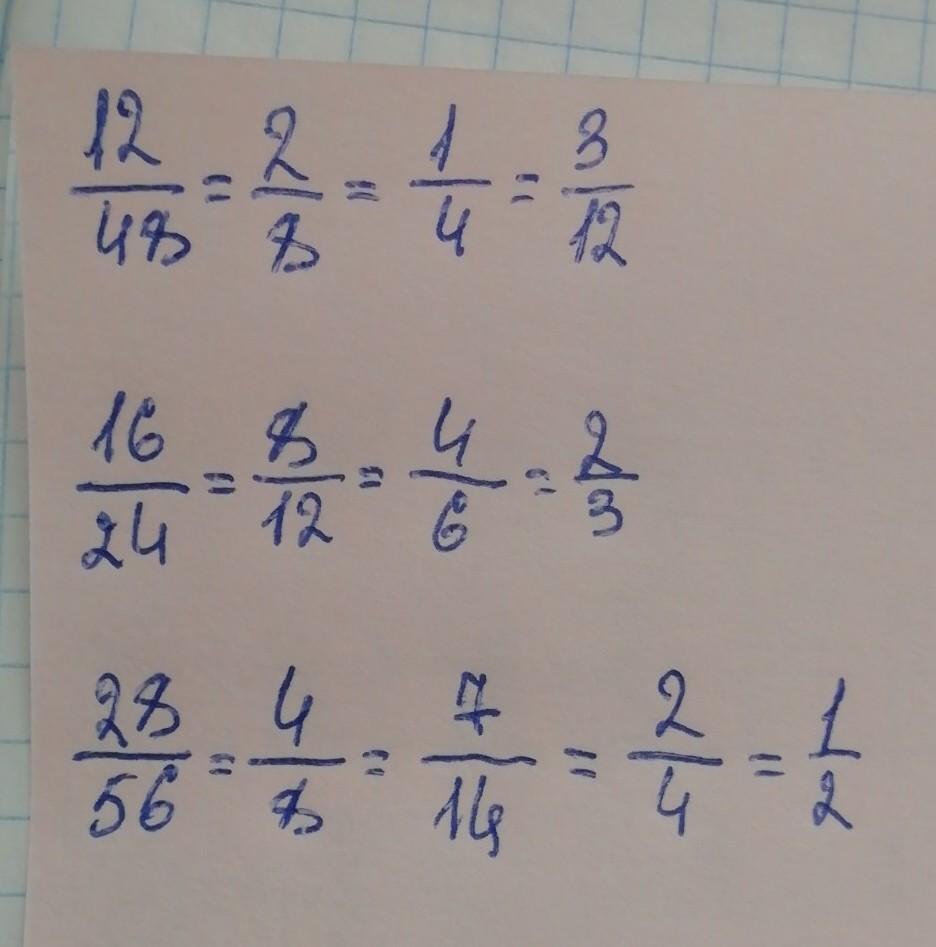 12/48 = 2/8 = 1/4 = 3/12
16/24 = 8/12 = 4/6 = 2/3
28/56 = 4/8 = 7/14 = 2/4 = 1/2